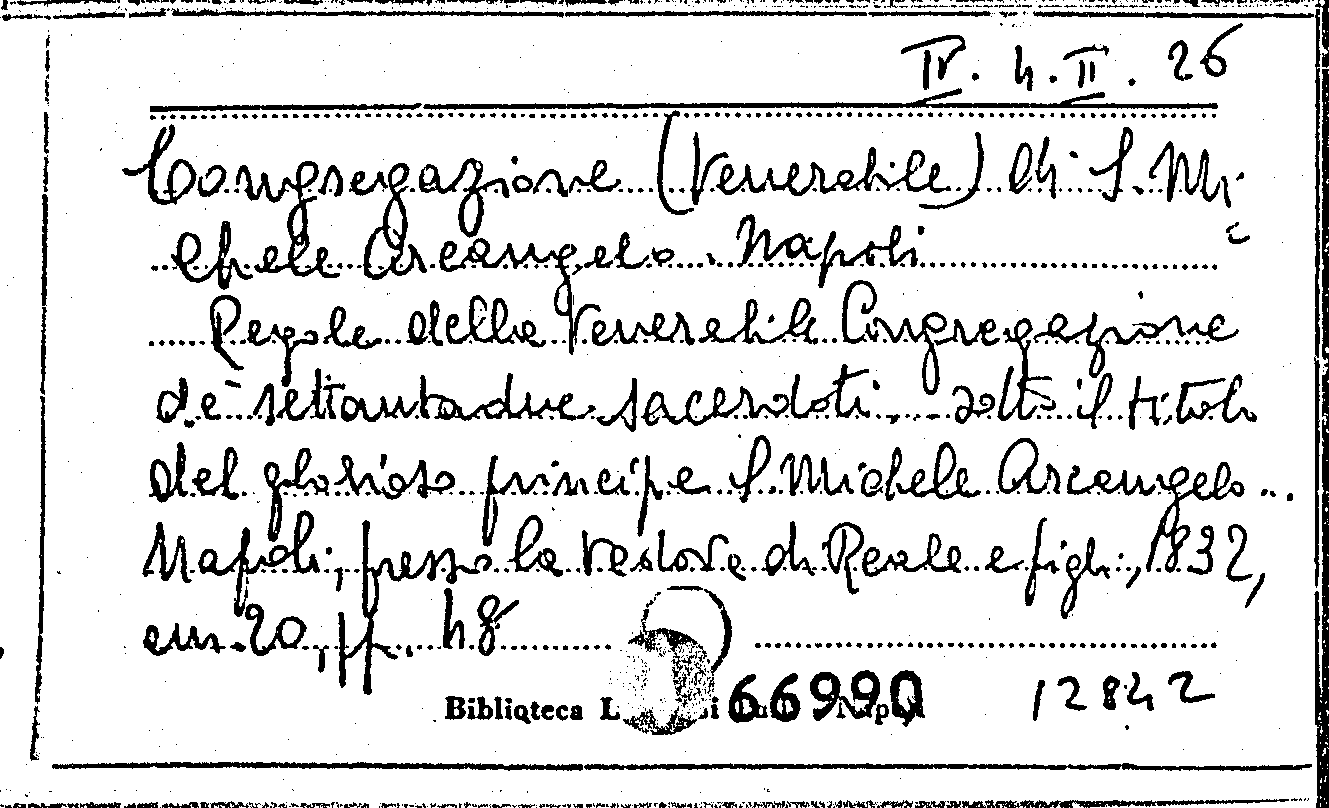 IV. 4. II. 26
Congregazione (Venerabile) di S. Mi-
chele Arcangelo. Napoli
Regole della Venerabile Congregazione
de' settantadue sacerdoti, sotto il titolo
del glorioso principe S. Michele Arcangelo..
Napoli, presso la vedova di Reale e figli, 1832,
cm. 20, pp. 48
Biblioteca 66990 12842